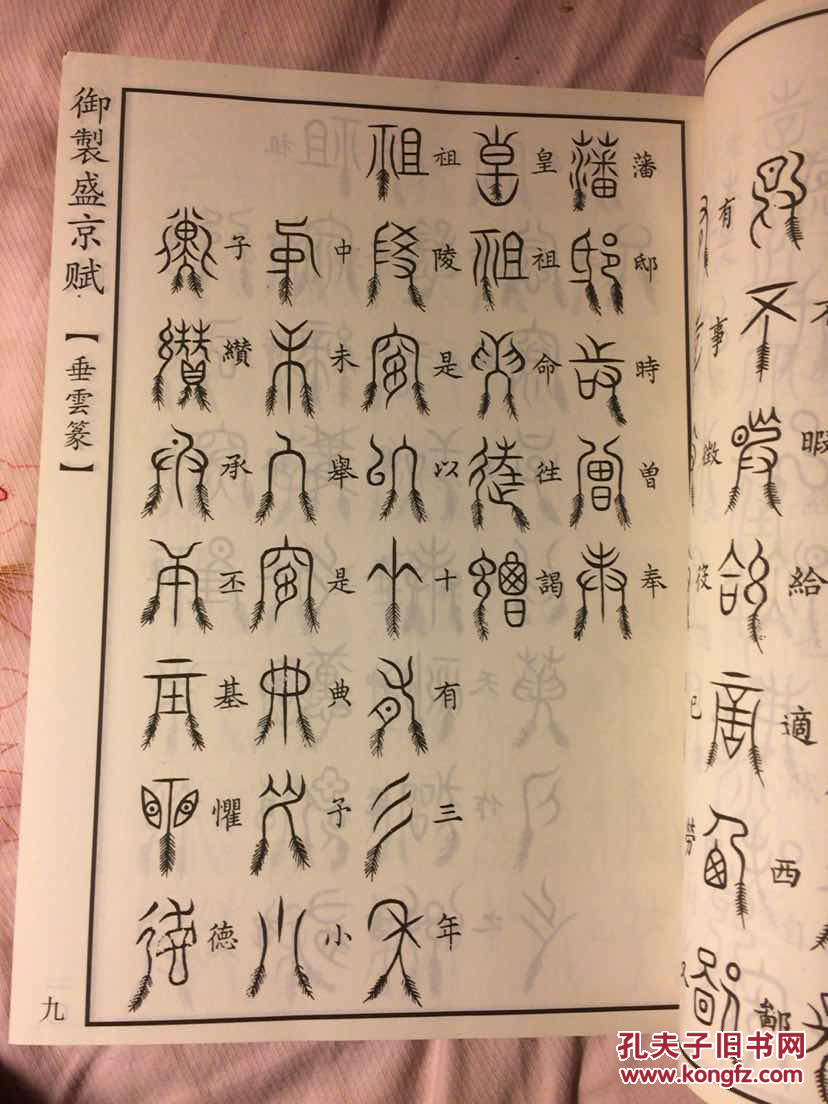 不暇給適西鄙
有事徵役
藩邸時曾奉
皇祖命徃謁
祖陵是以十有三年
中未舉是典子小
子纘承丕基懼德
御製盛京赋【垂雲篆】
九
孔夫子旧书网
www.kongfz.com